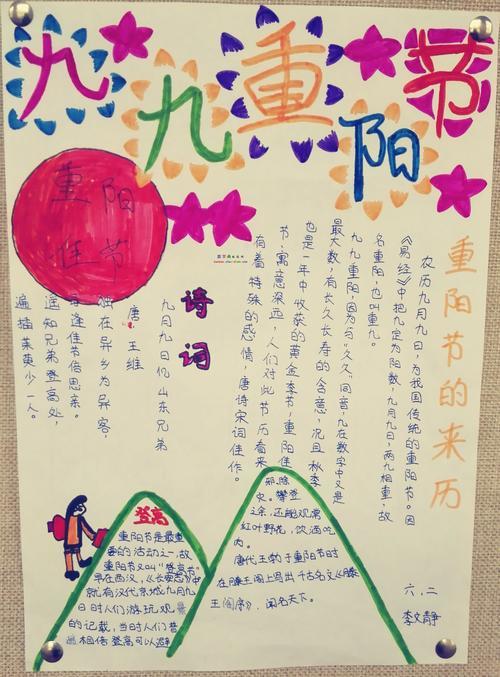 九九重阳节
重阳
佳节
重阳节的来历
农历九月九日，为我国传统的重阳节。因
《易经》中把九定为阳数，九月九日，两九相重，故
名重阳，也叫重九。
九九重阳，因为与“久久”同音，九在数字中又是
最大数，有长久长寿的含意，况且秋季
也是一年中收获的黄金季节，重阳佳
节，寓意深远，人们对此节历看来
有着特殊的感情，唐诗宋词佳作。
诗词
九月九日忆山东兄弟
唐 王维
独在异乡为异客，
每逢佳节倍思亲。
遥知兄弟登高处，
遍插茱萸少一人。
登高
重阳节是最重
要的活动之一，故
重阳节又叫“登高节”
早在西汉，《长安志》中
就有汉代京城九月九
日时人们游玩观景
的记载，当时人们普
相信登高可以避
邪，除
灾。攀登
之余，还能观赏
红叶野花，饮酒吃
肉。
唐代王勃于重阳节时
在滕王阁上写出千古名文《滕
王阁序》，闻名天下。
六、二
李文静